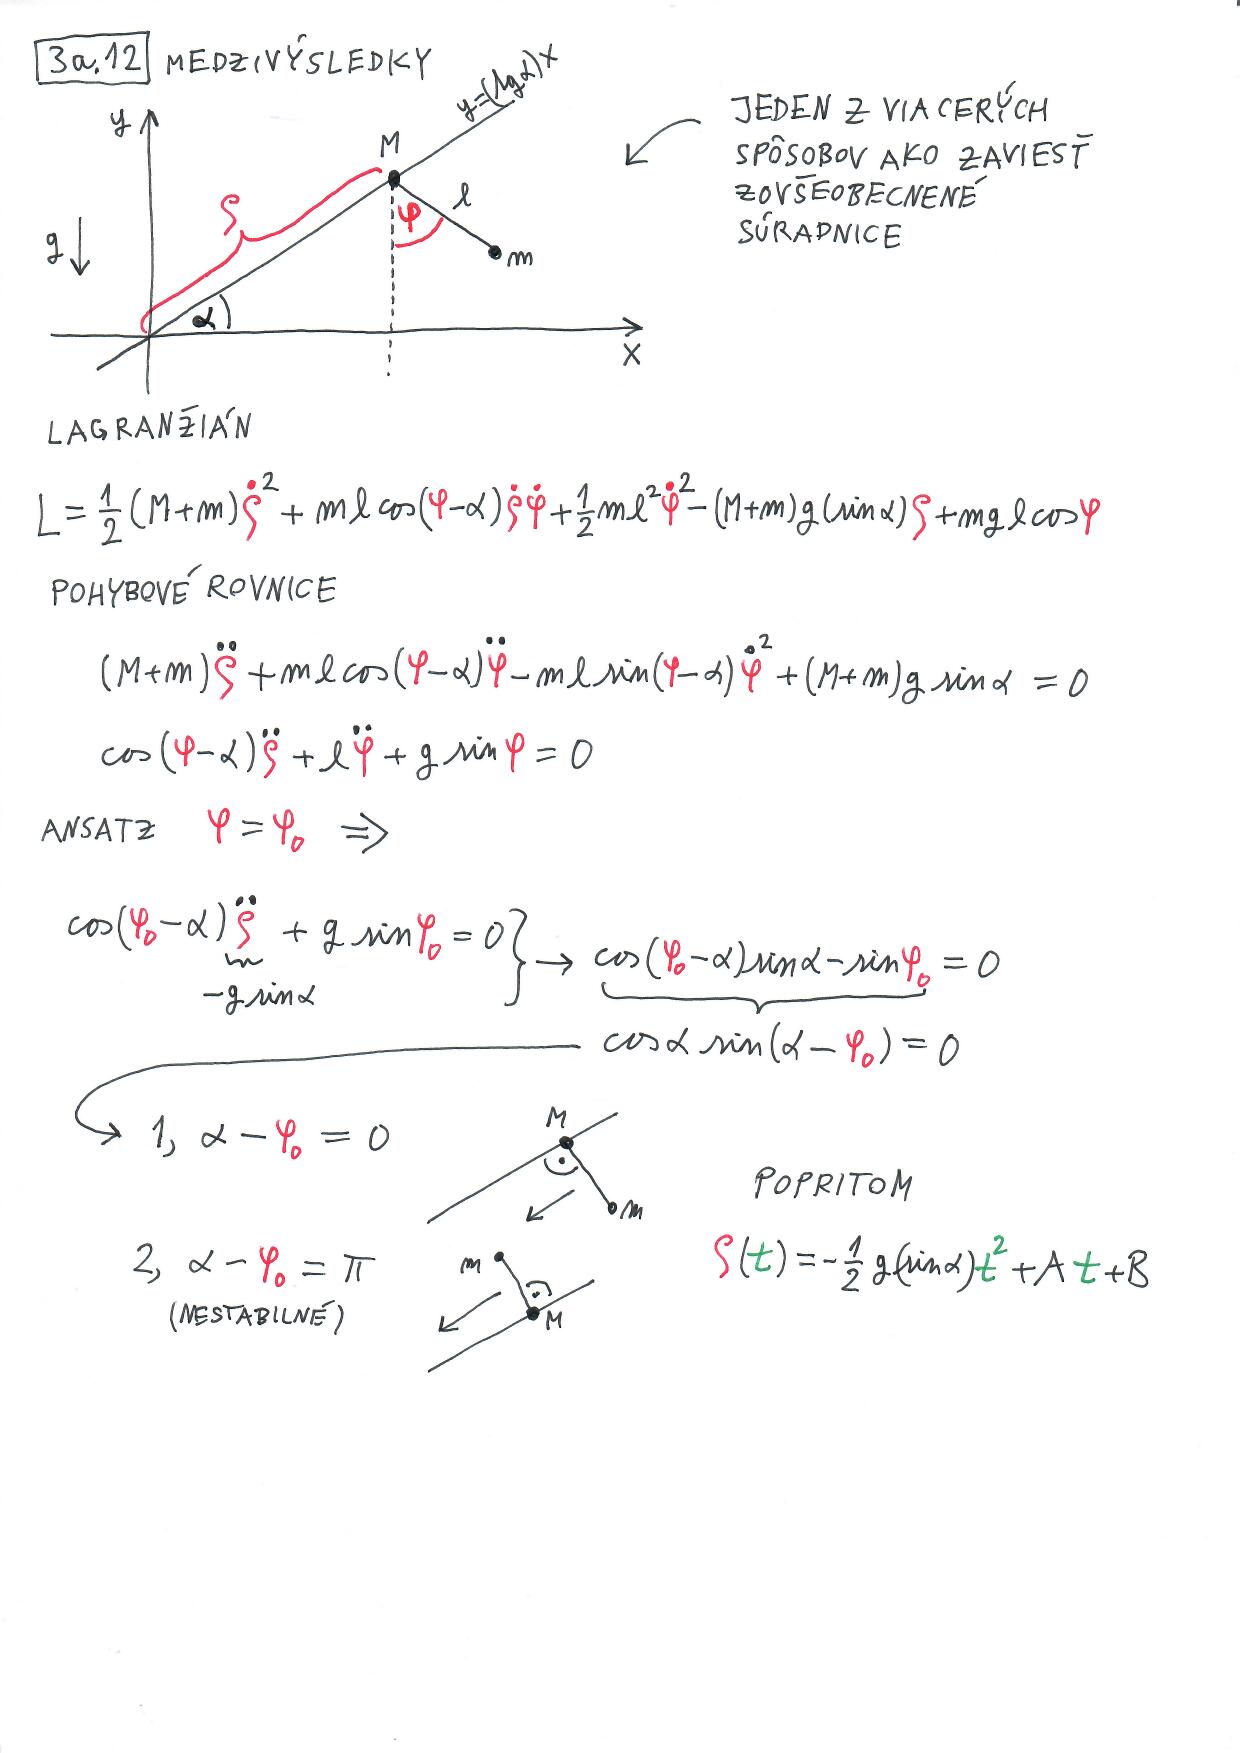 3a.12 MEDZIVÝSLEDKY
y=(tgα)x
y
M
ρ
φ
l
m
g↓
α
x
JEDEN Z VIACERÝCH
SPÔSOBOV AKO ZAVIESŤ
ZOVŠEOBECNENÉ
SÚRADNICE
LAGRANŽIÁN
L = ½(M+m)ρ̇² + ml cos(φ-α)ρ̇φ̇ + ½ml²φ̇² - (M+m)g(sinα)ρ + mgl cosφ
POHYBOVÉ ROVNICE
(M+m)ρ̈ + ml cos(φ-α)φ̈ - ml sin(φ-α)φ̇² + (M+m)g sinα = 0
cos(φ-α)ρ̈ + lφ̈ + g sinφ = 0
ANSATZ φ = φ₀ ⇒
cos(φ₀-α)ρ̈ + g sinφ₀ = 0 } → cos(φ₀-α)sinα - sinφ₀ = 0
-g sinα
cosα sin(α-φ₀) = 0
1, α - φ₀ = 0
M
m
POPRITOM
ρ(t) = -½g(sinα)t² + At + B
2, α - φ₀ = π
(NESTABILNÉ)
m
M